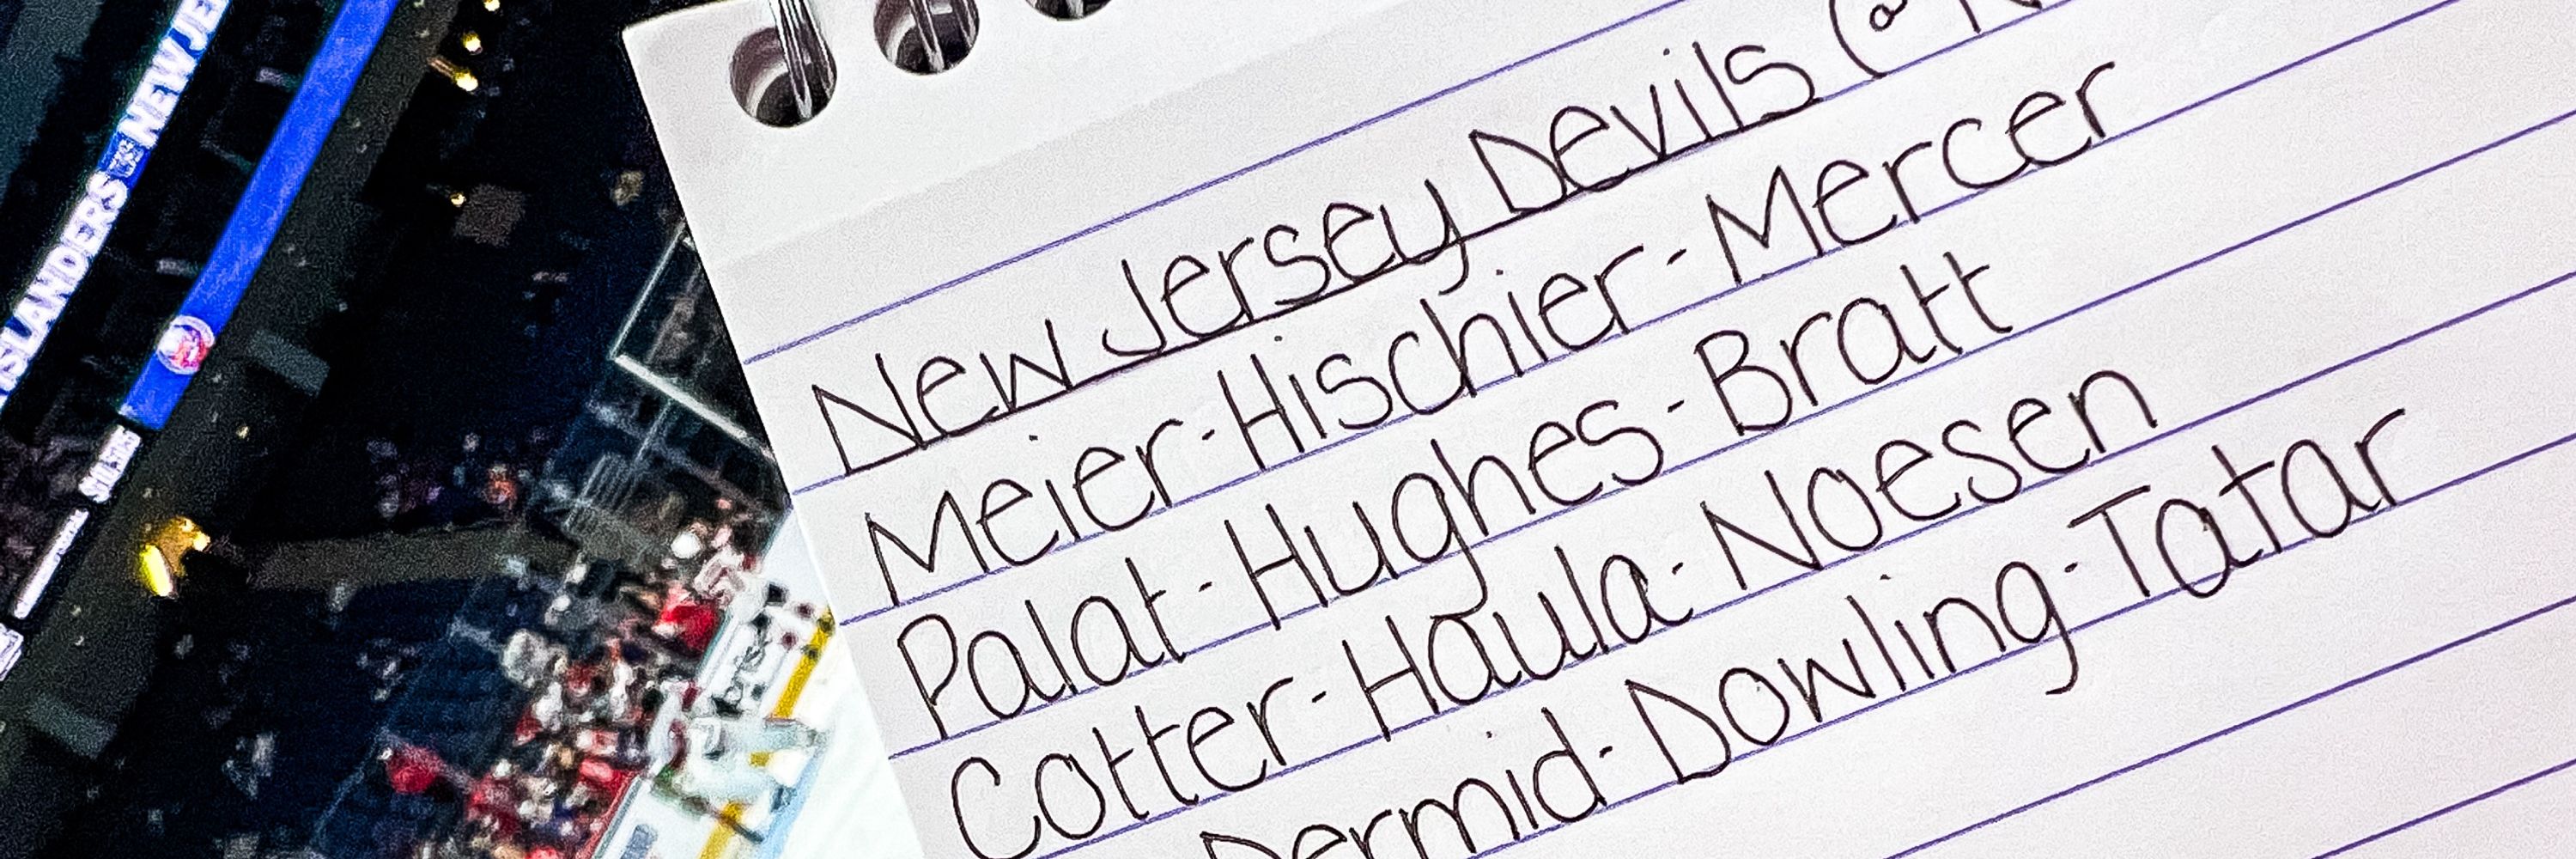 ISLANDERS VS NEW JE
New Jersey Devils (@ N
Meier - Hischier - Mercer
Palat - Hughes - Bratt
Cotter - Haula - Noesen
Dermid - Dowling - Tatar